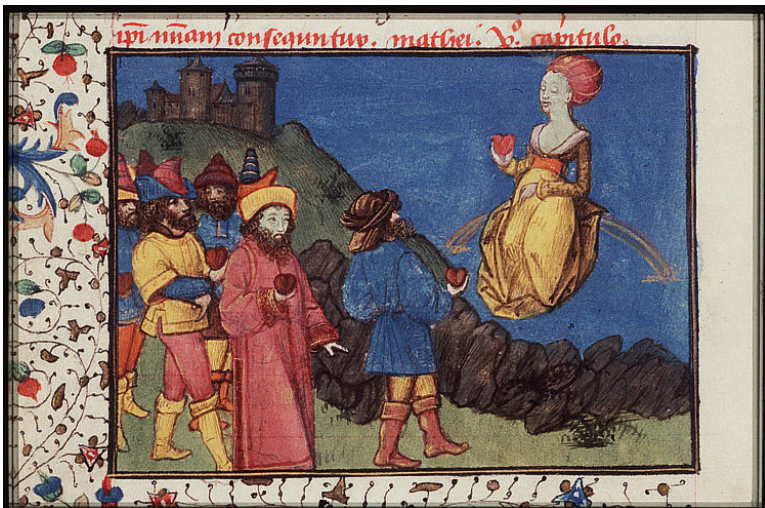 ip̃i mĩam consequntur. mathei. vº. capitulo.